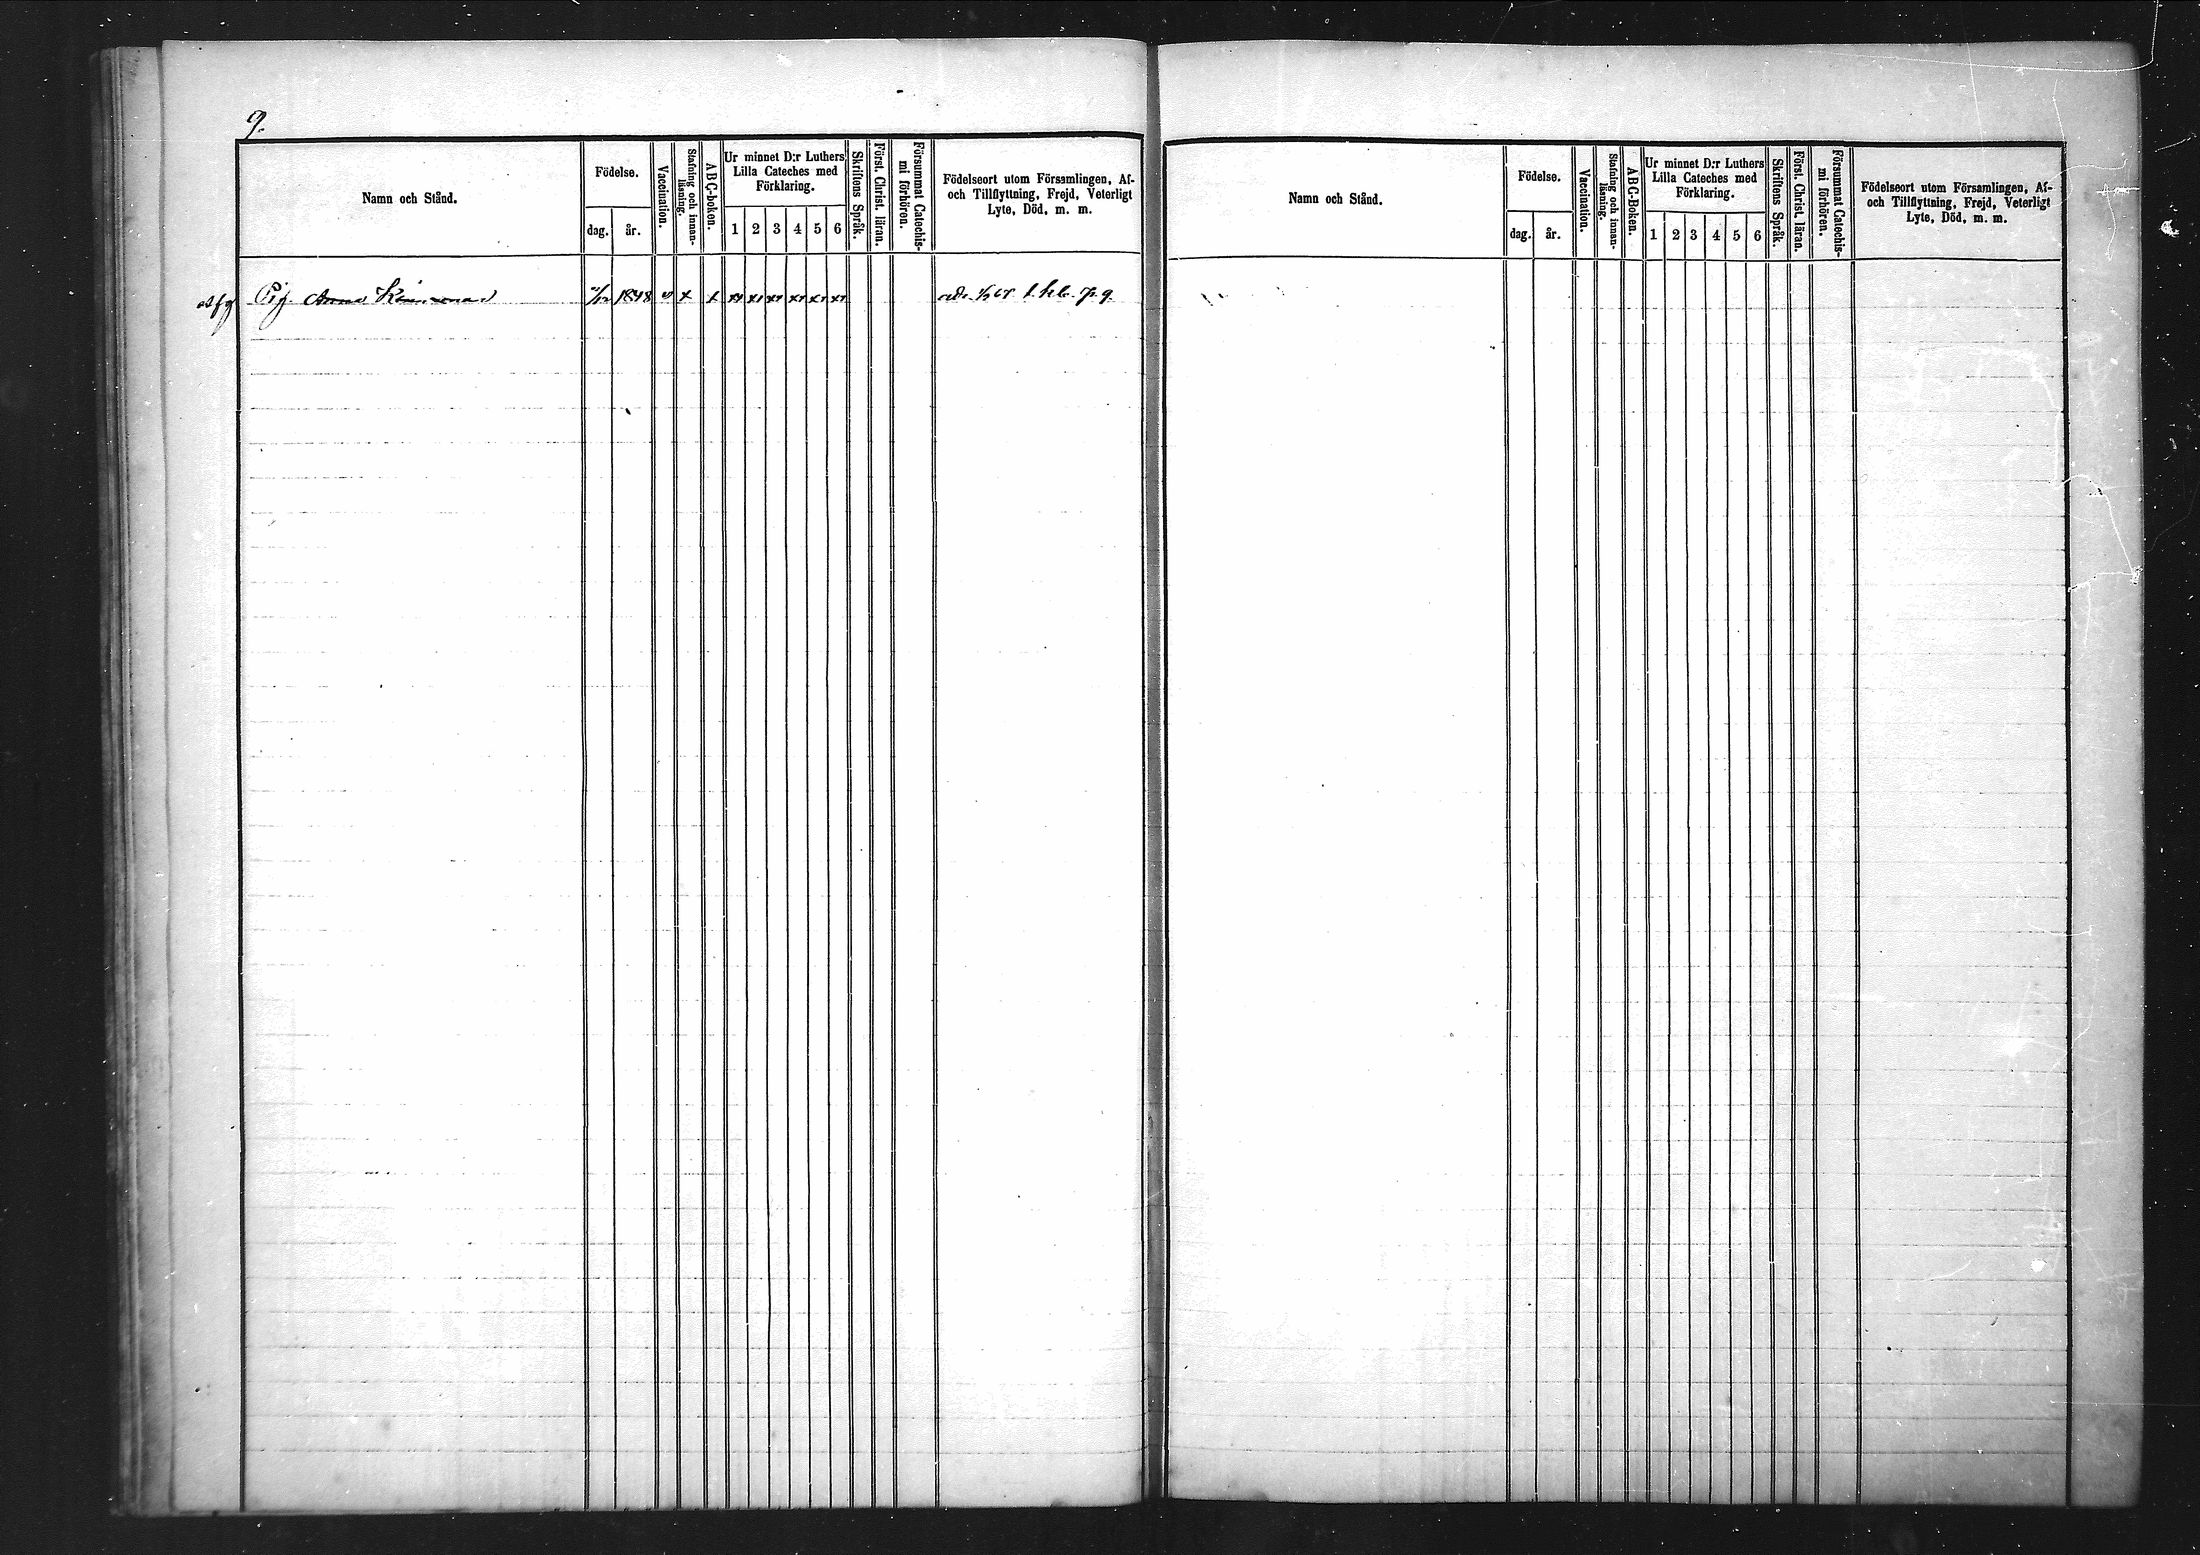 9.
Namn och Stånd.
Födelse.
dag.
år.
Vaccination.
Stafning och innan-
läsning.
ABC-boken.
Ur minnet D:r Luthers
Lilla Cateches med
Förklaring.
1 2 3 4 5 6
Skriftens Språk.
Först. Christ. läran.
Försummat Catechis-
mi förhören.
Födelseort utom Församlingen, Af-
och Tillflyttning, Frejd, Veterligt
Lyte, Död, m. m.
Pig. Anna 1848 v x x x x x x x x
Namn och Stånd.
Födelse.
dag.
år.
Vaccination.
Stafning och innan-
läsning.
ABC-Boken.
Ur minnet D:r Luthers
Lilla Cateches med
Förklaring.
1 2 3 4 5 6
Skriftens Språk.
Först. Christ. läran.
Försummat Catechis-
mi förhören.
Födelseort utom Församlingen, Af-
och Tillflyttning, Frejd, Veterligt
Lyte, Död, m. m.